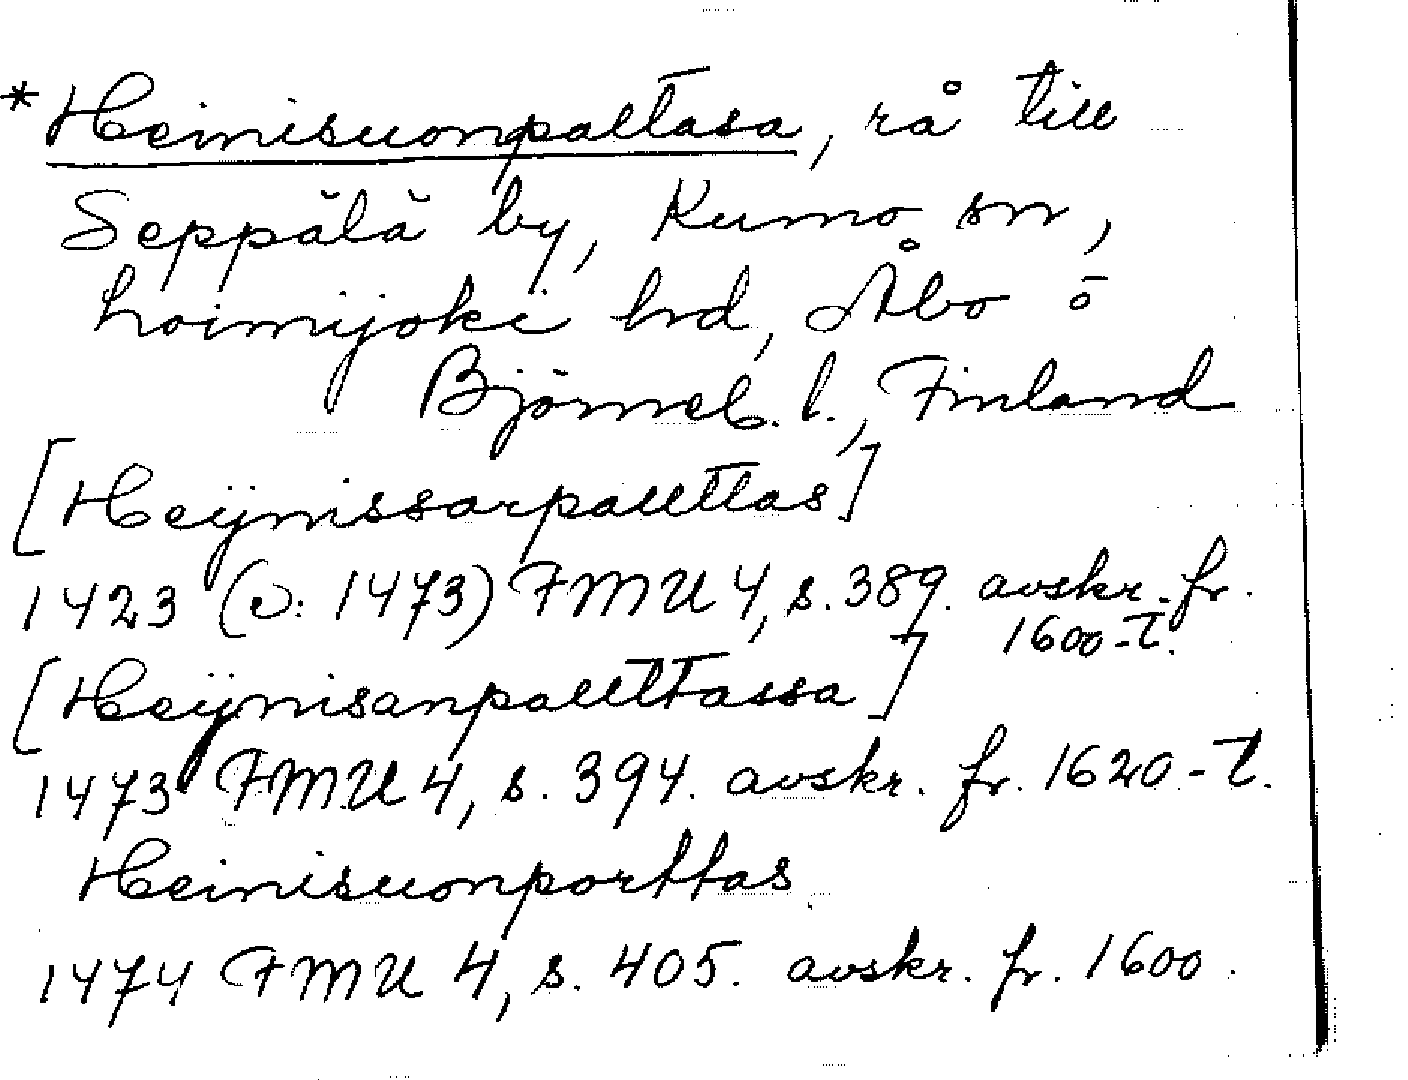 *Heinisuonpaltasa, rå till
Seppälä by, Kumo sn,
Loimijoki hd, Åbo o
Björneb. l., Finland
[Heijnissarpallttas]
1423 (ɔ: 1473) FMU 4, s. 389. avskr. fr.
1600-t.
[Heijnisanpallttassa]
1473 FMU 4, s. 394. avskr. fr. 1620-t.
Heinisuonporttas
1474 FMU 4, s. 405. avskr. fr. 1600.